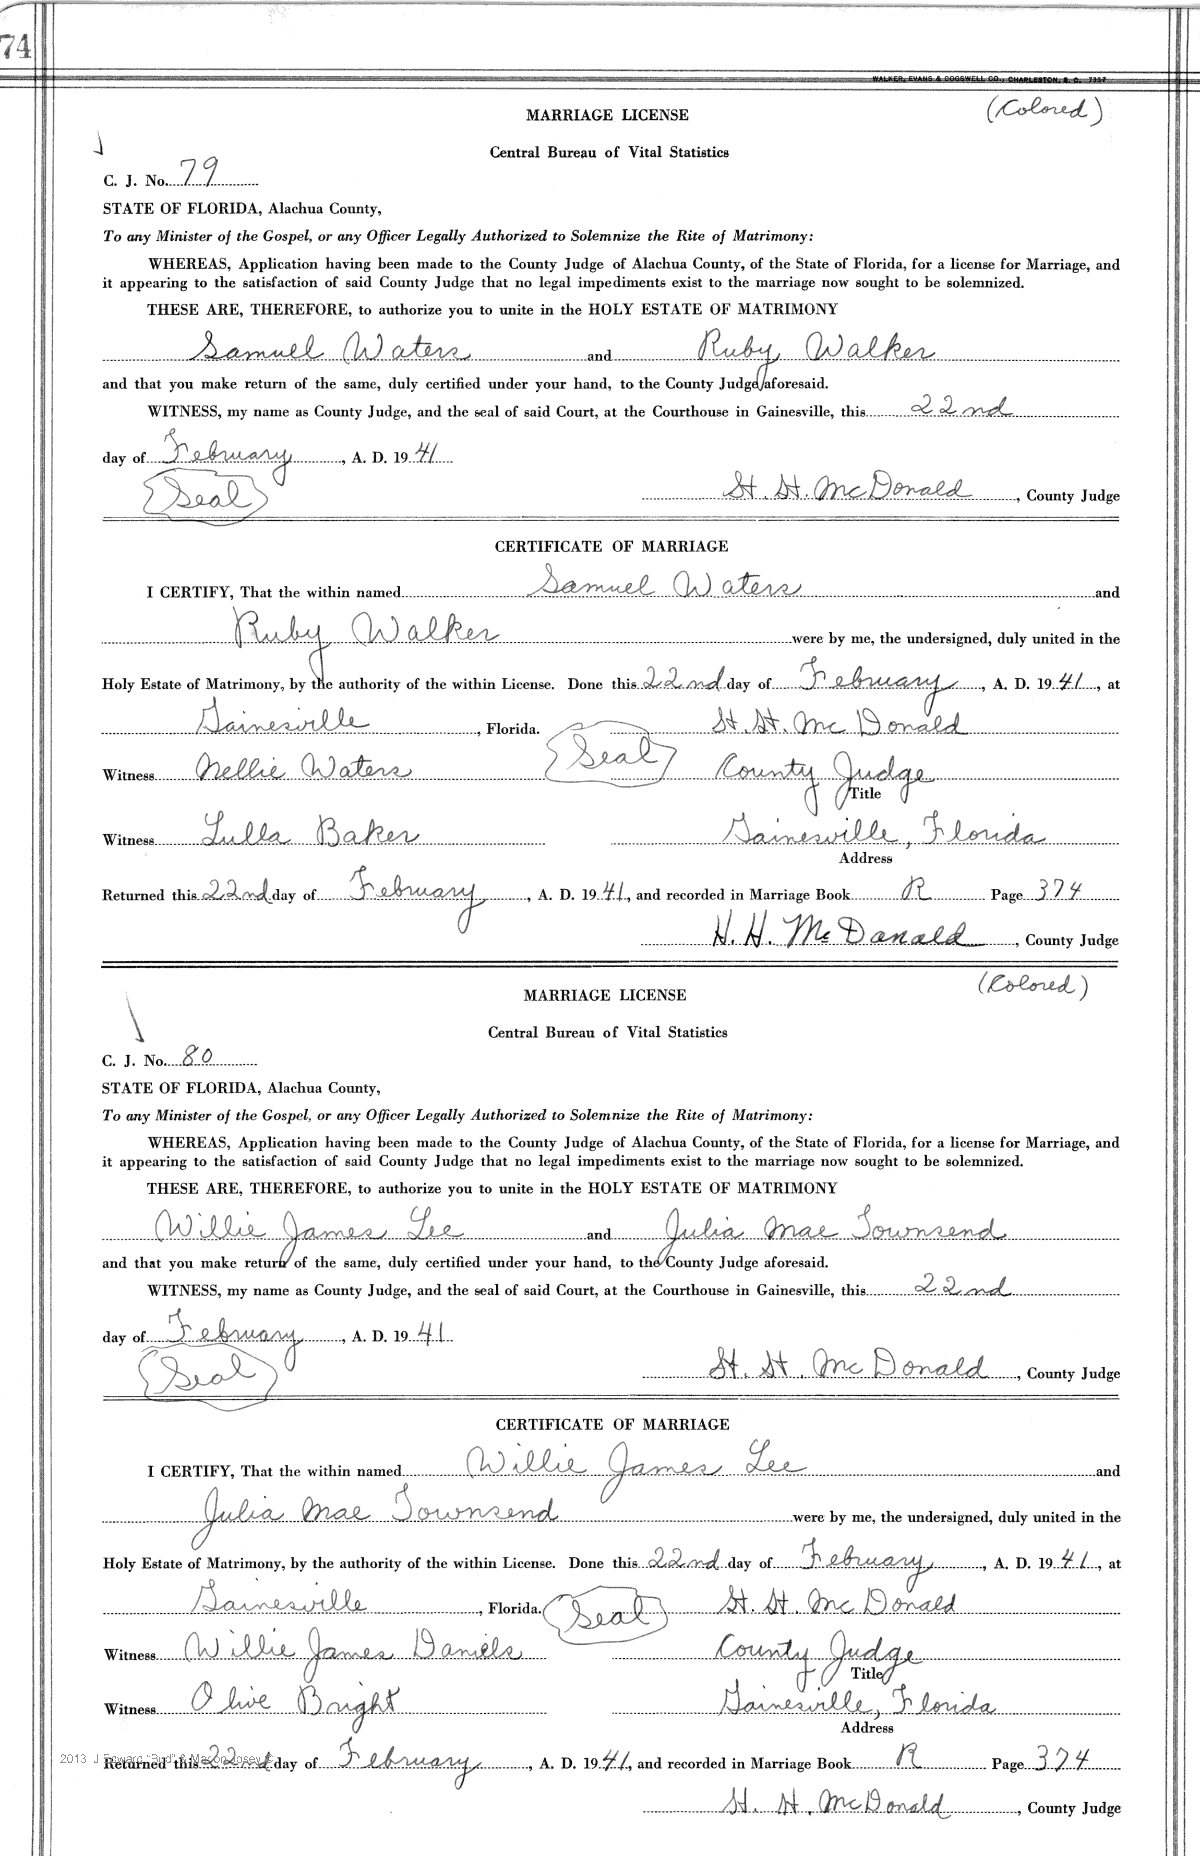 74
WALKER, EVANS & COGSWELL CO., CHARLESTON, S. C. 7357
MARRIAGE LICENSE (Colored)
Central Bureau of Vital Statistics
C. J. No. 79
STATE OF FLORIDA, Alachua County,
To any Minister of the Gospel, or any Officer Legally Authorized to Solemnize the Rite of Matrimony:
WHEREAS, Application having been made to the County Judge of Alachua County, of the State of Florida, for a license for Marriage, and
it appearing to the satisfaction of said County Judge that no legal impediments exist to the marriage now sought to be solemnized.
THESE ARE, THEREFORE, to authorize you to unite in the HOLY ESTATE OF MATRIMONY
Samuel Waters and Ruby Walker
and that you make return of the same, duly certified under your hand, to the County Judge aforesaid.
WITNESS, my name as County Judge, and the seal of said Court, at the Courthouse in Gainesville, this 22nd
day of February, A. D. 1941
Seal H. H. McDonald, County Judge
CERTIFICATE OF MARRIAGE
I CERTIFY, That the within named Samuel Waters and
Ruby Walker were by me, the undersigned, duly united in the
Holy Estate of Matrimony, by the authority of the within License. Done this 22nd day of February, A. D. 1941, at
Gainesville, Florida. Seal H. H. McDonald
Witness Nellie Waters County Judge
Title
Witness Lulla Baker Gainesville, Florida
Address
Returned this 22nd day of February, A. D. 1941, and recorded in Marriage Book R Page 374
H. H. McDonald, County Judge
MARRIAGE LICENSE (Colored)
Central Bureau of Vital Statistics
C. J. No. 80
STATE OF FLORIDA, Alachua County,
To any Minister of the Gospel, or any Officer Legally Authorized to Solemnize the Rite of Matrimony:
WHEREAS, Application having been made to the County Judge of Alachua County, of the State of Florida, for a license for Marriage, and
it appearing to the satisfaction of said County Judge that no legal impediments exist to the marriage now sought to be solemnized.
THESE ARE, THEREFORE, to authorize you to unite in the HOLY ESTATE OF MATRIMONY
Willie James Lee and Julia Mae Townsend
and that you make return of the same, duly certified under your hand, to the County Judge aforesaid.
WITNESS, my name as County Judge, and the seal of said Court, at the Courthouse in Gainesville, this 22nd
day of February, A. D. 1941
Seal H. H. McDonald, County Judge
CERTIFICATE OF MARRIAGE
I CERTIFY, That the within named Willie James Lee and
Julia Mae Townsend were by me, the undersigned, duly united in the
Holy Estate of Matrimony, by the authority of the within License. Done this 22nd day of February, A. D. 1941, at
Gainesville, Florida. Seal H. H. McDonald
Witness Willie James Daniels County Judge
Title
Witness Olive Bright Gainesville, Florida
Address
2013 J
Returned this 22nd day of February, A. D. 1941, and recorded in Marriage Book R Page 374
H. H. McDonald, County Judge